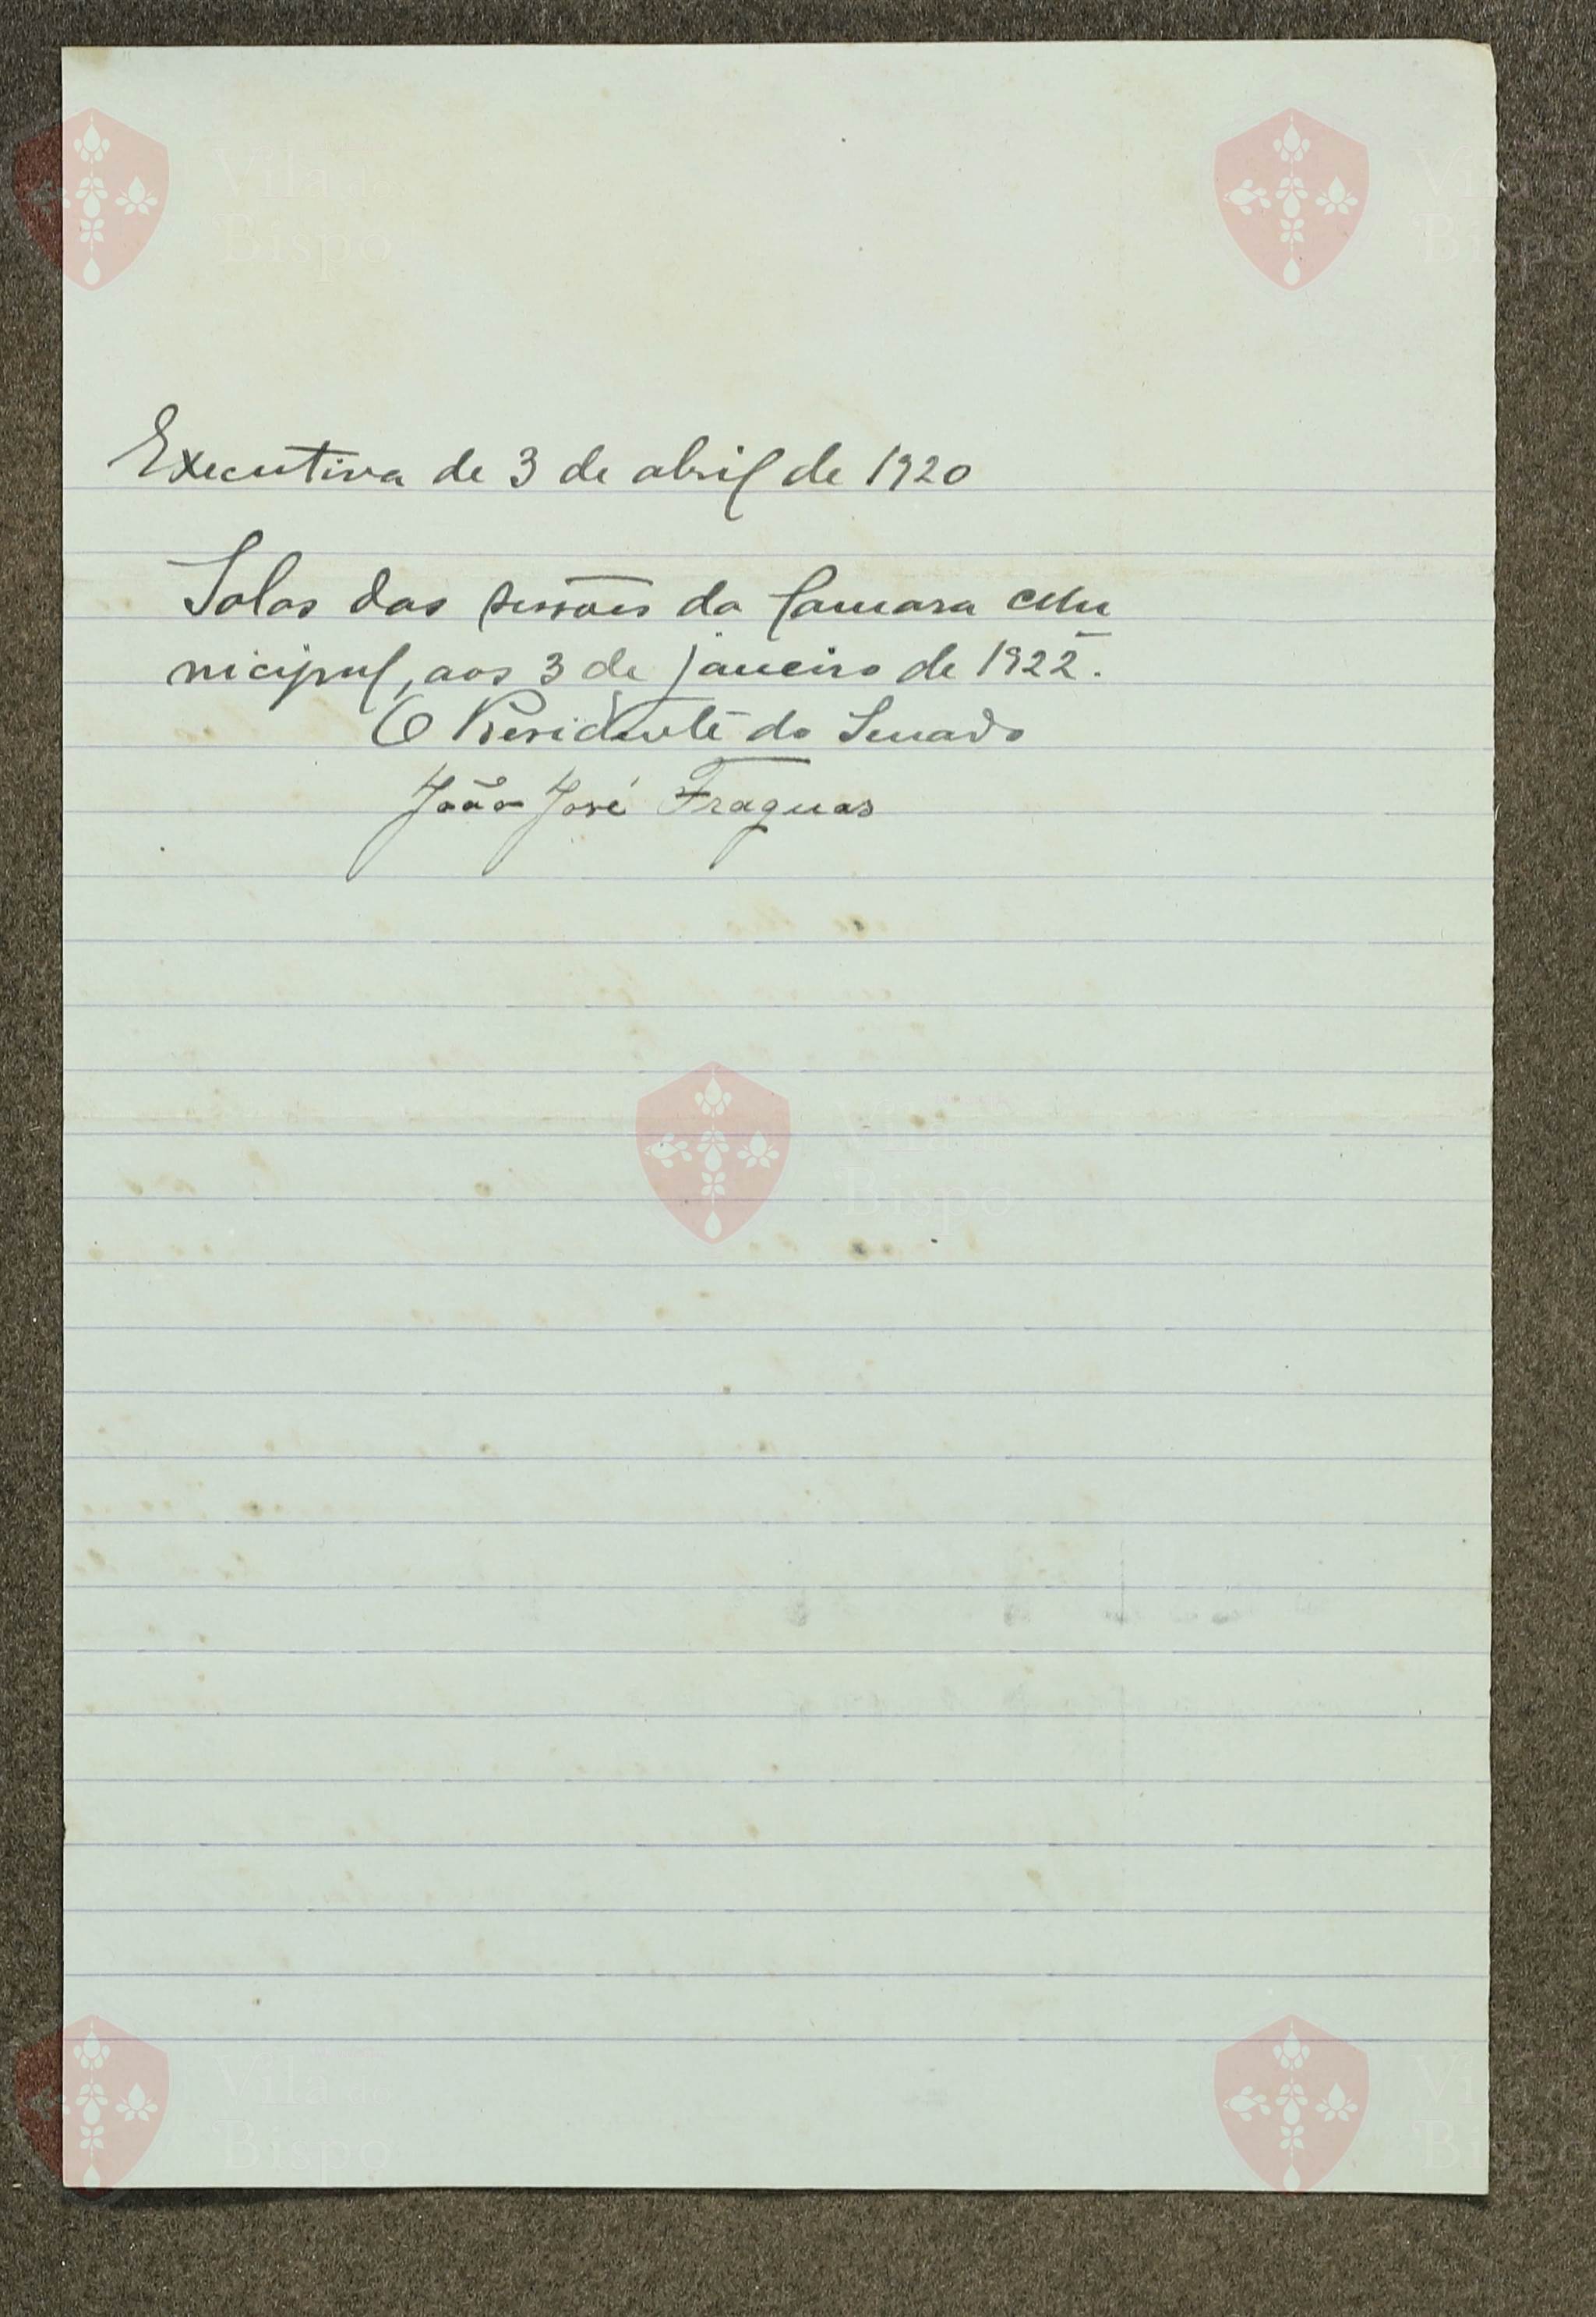 Vila do
Bispo
Vila do
Bispo
Executiva de 3 de abril de 1920
Salas das sessões da Camara Mu
nicipal, aos 3 de janeiro de 1922.
O Presidente do Senado
João José Fraguas
Vila do
Bispo
Vila do
Bispo
Vila do
Bispo